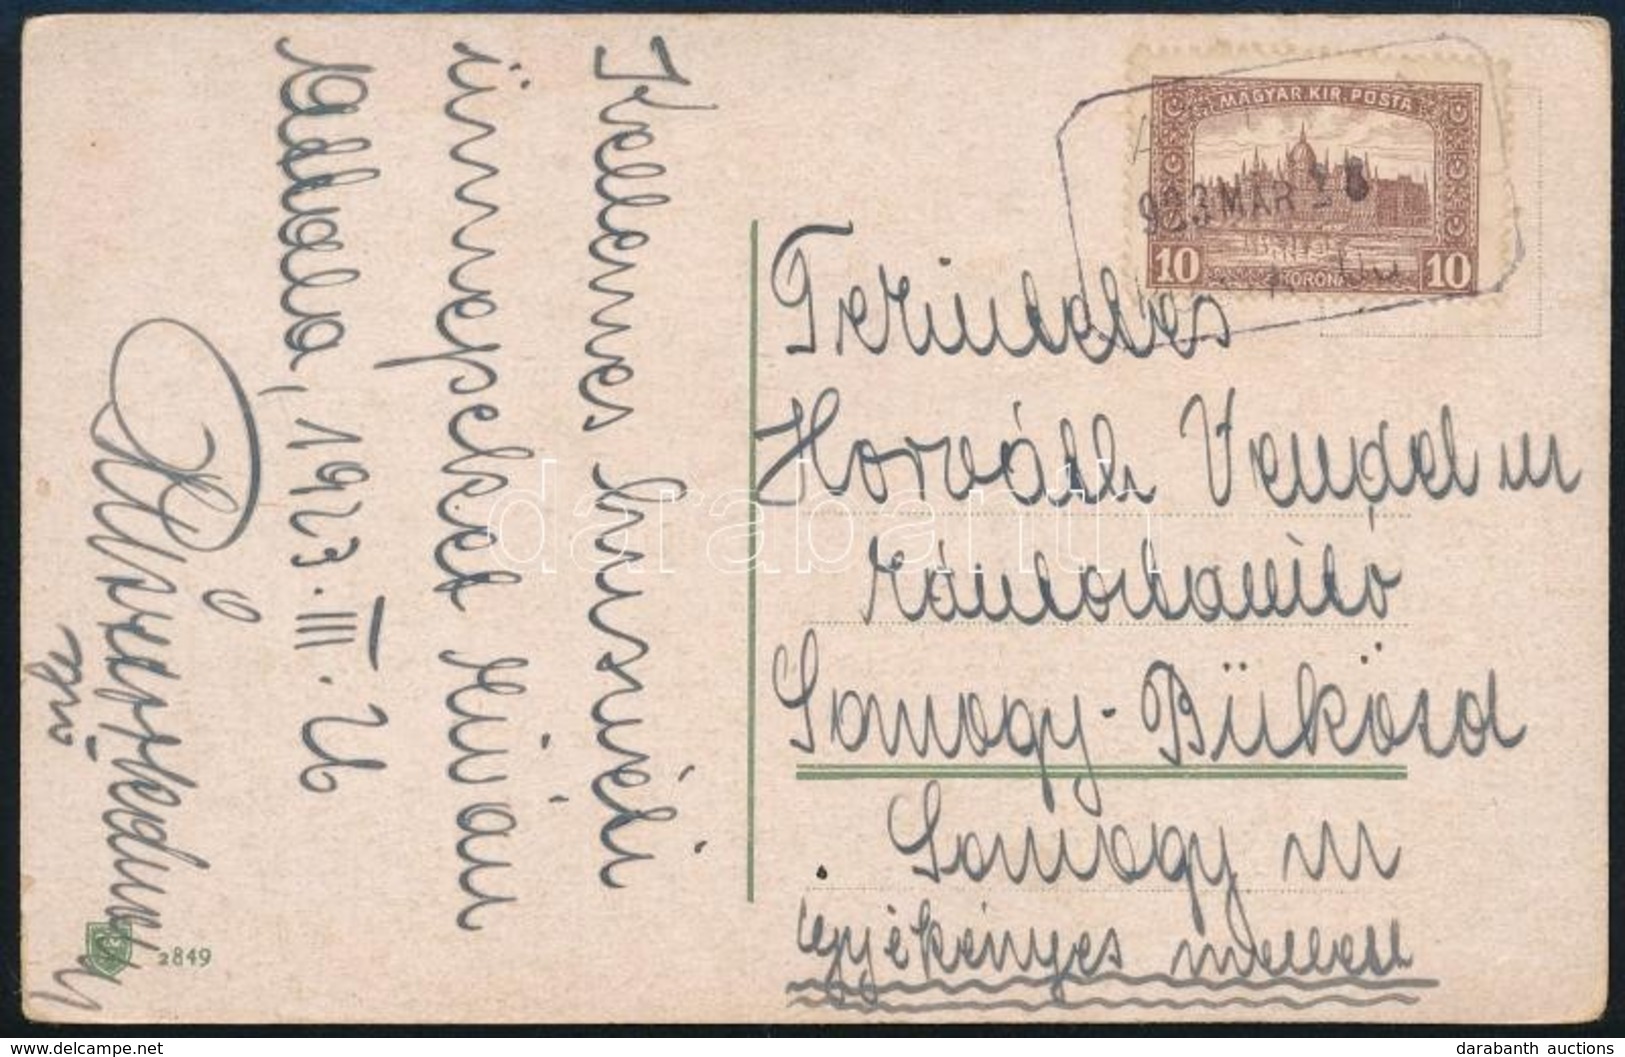 Kellemes húsvéti
ünnepeket kíván
1923. III. 26
2849
MAGYAR KIR. POSTA
10 KORONA 10
923 MAR 28
Tekintetes
Horváth Vendel úr
Kántortanító
Somogy-Bükösd
Somogy m
Gyékényes mellett
darabanth
hippostcard.com
darabanth auctions